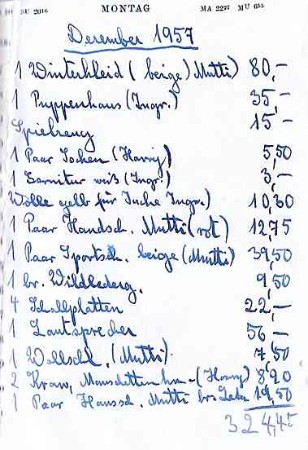 MONTAG
MA 2222 MU
Dezember 1957
1 Winterkleid (beige) Mutti) 80,-
1 Puppenhaus (Ingr.) 35,-
Spielzeug 15,-
1 Paar Socken (Harry) 5,50
1 Garnitur weiß (Ingr.) 3,-
Wolle gelb für Jacke Ingr.) 10,30
1 Paar Handsch. Mutti (rot) 12,75
1 Paar Sportsch. beige (Mutti) 39,50
1 br. Wildlederg. 9,50
4 Schallplatten 22,-
1 Lautsprecher 56,-
1 Wollschl. (Mutti). 7,50
2 Kraw, Manschetten (Harry) 8,90
1 Paar Haussch. Mutti br. 19,50
324,45